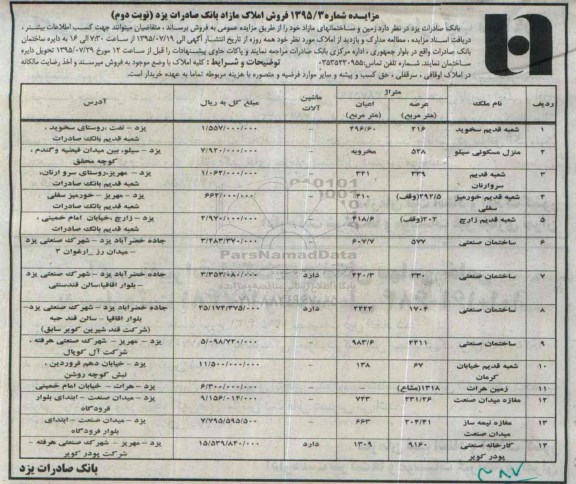 مزایـــده شماره ۱۳۹۵/۳ فروش املاک مازاد بانک صادرات یزد (نوبت دوم)
بانک صادرات یزد در نظر دارد زمین و ساختمانهای مازاد خود را از طریق مزایده عمومی به فروش برساند ، متقاضیان میتوانند جهت کسب اطلاعات بیشتر ،
دریافت اسناد مزایده ، مطالعه مدارک و بازدید از املاک مورد نظر خود همه روزه از تاریخ انتشار آگهی الی ۱۳۹۵/۰۷/۱۹ از ساعت ۷:۳۰ الی ۱۶ به دایره ساختمان
بانک صادرات واقع در بلوار جمهوری ، اداره مرکزی بانک صادرات مراجعه نمایند و پاکات حاوی پیشنهادات را قبل از ساعت ۱۲ مورخ ۱۳۹۵/۰۷/۲۹ تحویل دایره
ساختمان نمایند. شماره تلفن تماس: ۰۳۵۳۵۲۳۰۹۵۵ توضیحات و شرایط : کلیه املاک با وضع موجود به فروش میرسند و اخذ رضایت مالکانه
در املاک اوقافی ، سرقفلی ، حق کسب و پیشه و سایر موارد فرضیه و متصوره با هزینه مربوطه تماما به عهده خریدار است.
ردیف نام ملک متراژ ماشین آلات مبلغ کل به ریال آدرس
عرصه (متر مربع) اعیان (متر مربع)
۱ شعبه قدیم سخوید ۲۱۶ ۲۹۶/۶۰ – ۱/۵۵۷/۰۰۰/۰۰۰ یزد – تفت ، روستای سخوید ، شعبه قدیم بانک صادرات
۲ منزل مسکونی سیلو ۵۲۸ مخروبه – ۷/۹۲۰/۰۰۰/۰۰۰ یزد – سیلو، بین میدان فیضیه و گندم ، کوچه محقق
۳ شعبه قدیم سروارتان ۳۳۹ ۳۲۱ – ۱/۰۶۲/۰۰۰/۰۰۰ یزد – مهریز، روستای سرو ارتان، شعبه قدیم بانک صادرات
۴ شعبه قدیم خورمیز سفلی ۲۹۲/۵(وقف) ۳۱۰ – ۶۶۲/۰۰۰/۰۰۰ یزد – مهریز – خورمیز سفلی شعبه قدیم بانک صادرات
۵ شعبه قدیم زارچ ۲۰۲(وقف) ۴۱۸/۶ – ۲/۹۷۰/۰۰۰/۰۰۰ یزد – زارچ ، خیابان امام خمینی ، شعبه قدیم بانک صادرات
۶ ساختمان صنعتی ۵۷۷ ۶۰۷/۷ – ۳/۲۸۳/۳۷۰/۰۰۰ جاده خضرآباد یزد – شهرک صنعتی یزد – میدان رز _ ارغوان ۳
۷ ساختمان صنعتی ۳۳۰ ۲۲۰/۳ دارد ۳/۲۵۳/۰۸۰/۰۰۰ جاده خضرآباد یزد – شهرک صنعتی یزد – بلوار اقاقیا، سالن قندسنتی
۸ ساختمان صنعتی ۱۷۰۴ ۲۲۲۲ دارد ۲۵/۱۷۴/۳۷۵/۰۰۰ جاده خضرآباد یزد – شهرک صنعتی یزد – بلوار اقاقیا – سالن قند حبه (شرکت قند شیرین کویر سابق)
۹ ساختمان صنعتی ۲۲۱۱ ۹۸۳/۶ – ۵/۰۹۸/۷۲۰/۰۰۰ یزد – مهریز – شهرک صنعتی هرفته ، شرکت آل کوپال
۱۰ شعبه قدیم خیابان کرمان ۶۷ ۱۳۸ – ۱۱/۵۰۰/۰۰۰/۰۰۰ یزد – خیابان دهم فروردین ، نبش کوچه روشن
۱۱ زمین هرات ۱۳۱۸(مشاع) – – ۶/۳۰۰/۰۰۰/۰۰۰ یزد – هرات – خیابان امام خمینی
۱۲ مغازه میدان صنعت ۲۳۱/۲۶ ۷۴۳ – ۹/۱۵۶/۰۱۴/۰۰۰ یزد – میدان صنعت – ابتدای بلوار فرودگاه
۱۳ مغازه نیمه ساز میدان صنعت ۲۰۴/۴۱ ۶۶۳ – ۷/۷۹۵/۵۹۵/۵۰۰ یزد – میدان صنعت – ابتدای بلوار فرودگاه
۱۴ کارخانه صنعتی پودر کویر ۹۱۶۰ ۱۳۰۹ دارد ۱۵/۵۳۹/۸۴۰/۰۰۰ یزد – مهریز – شهرک صنعتی هرفته – شرکت پودر کویر
بانک صادرات یزد
ParsNamadData